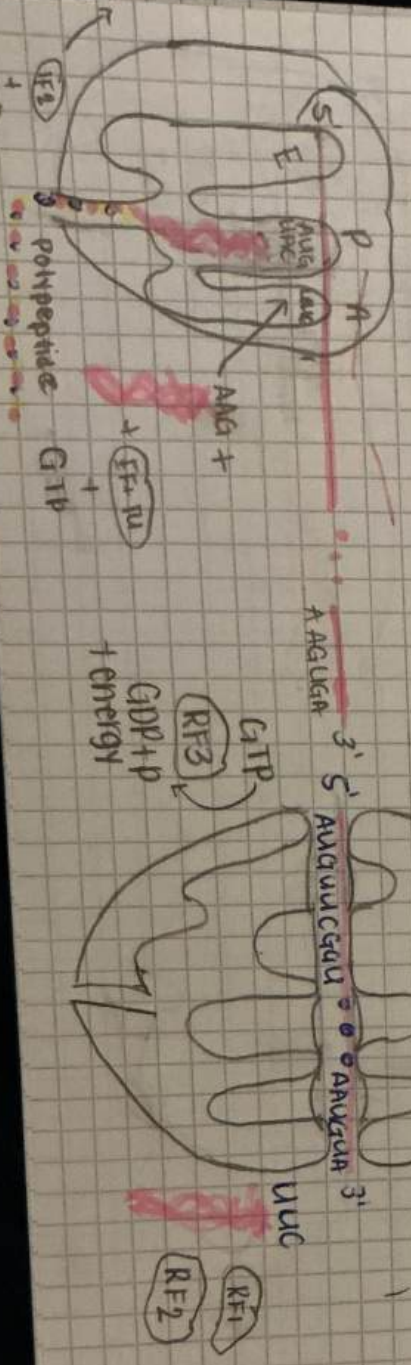 5'
E
P
A
AUG
UAC
AAG +
+ EF-TU
+
GTP
polypeptide
+
AAGUGA 3'
GTP
RF3
GDP+p
+energy
5' AUGUUCGGU AAUGUA 3'
UUC
RF1
RF2